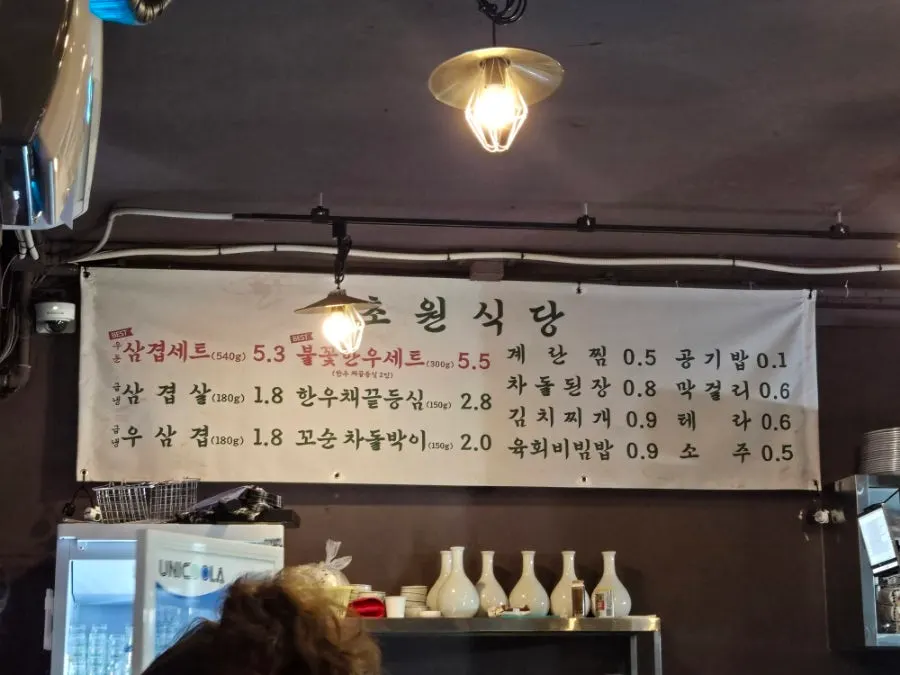 초원식당
BEST
우돈 삼겹세트(540g) 5.3
급냉 삼겹살(180g) 1.8
급냉 우삼겹(180g) 1.8
BEST
불꽃한우세트(300g) 5.5
(한우 채끝등심 2인)
한우채끝등심(150g) 2.8
꼬순차돌박이(150g) 2.0
계란찜 0.5
차돌된장 0.8
김치찌개 0.9
육회비빔밥 0.9
공기밥 0.1
막걸리 0.6
테라 0.6
소주 0.5
UNIC
LA